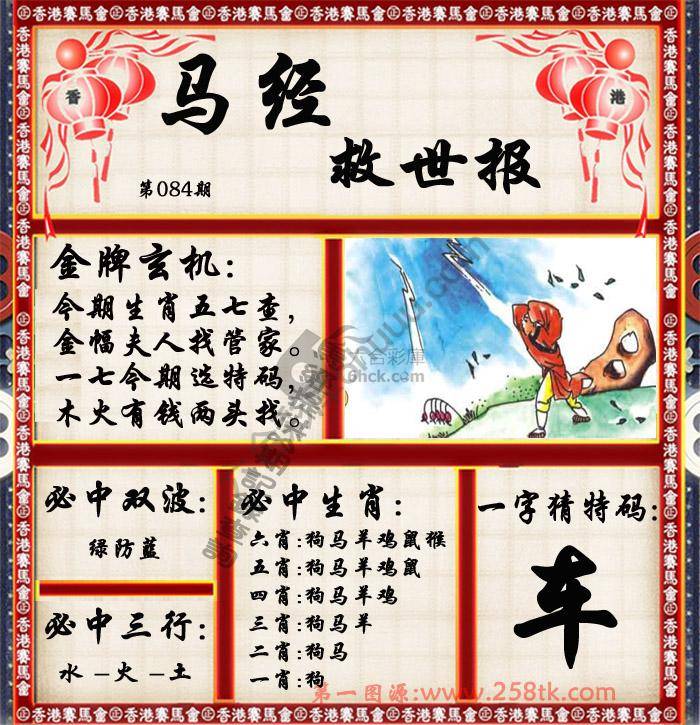 香港賽馬會
香
港
马经
救世报
第084期
金牌玄机:
今期生肖五七查,
金幅夫人找管家。
一七今期选特码,
木火有钱两头找。
必中双波:
绿防蓝
必中三行:
水-火-土
必中生肖:
六肖:狗马羊鸡鼠猴
五肖:狗马羊鸡鼠
四肖:狗马羊鸡
三肖:狗马羊
二肖:狗马
一肖:狗
一字猜特码:
车
第一图源:www.258tk.com